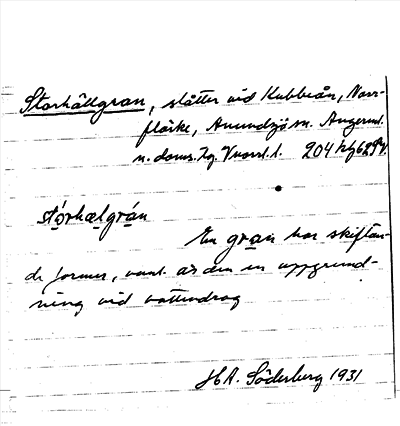 Storhällgran, slåtter vid Kubbeån, Norr-
flärke, Anundsjö sn. Ångerml.
n. doms. Vnorrl. l. 204
stórhælgrán
En gran har skiftan-
de former, vanl. är den en uppgrund-
ning vid vattendrag
H.A. Söderberg 1931